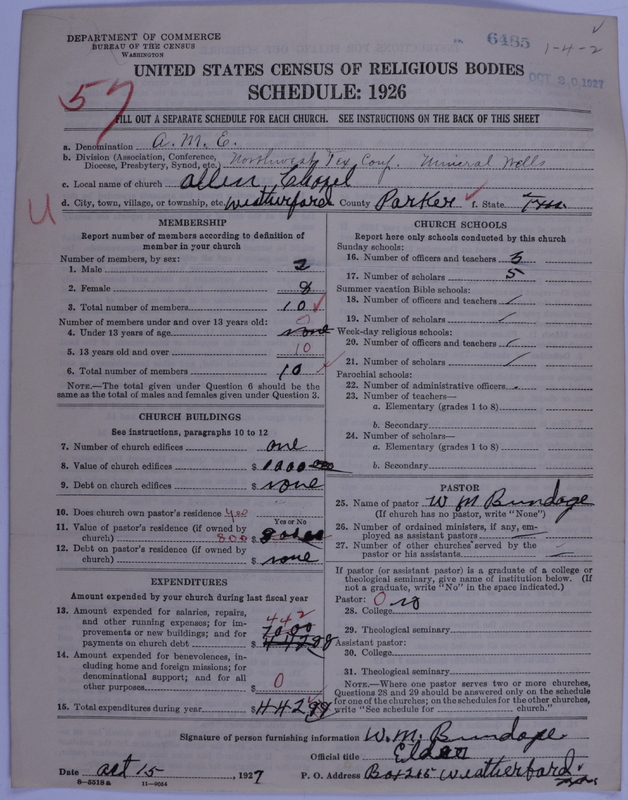 DEPARTMENT OF COMMERCE
BUREAU OF THE CENSUS
WASHINGTON
6485
1-4-2
OCT 20 1927
UNITED STATES CENSUS OF RELIGIOUS BODIES
SCHEDULE: 1926
57
FILL OUT A SEPARATE SCHEDULE FOR EACH CHURCH. SEE INSTRUCTIONS ON THE BACK OF THIS SHEET
a. Denomination A. M. E.
b. Division (Association, Conference, Diocese, Presbytery, Synod, etc.) Northwest Tex Conf. Mineral Wells
c. Local name of church Allen Chapel
U
d. City, town, village, or township, etc. Weatherford County Parker ✓ f. State Tex.
MEMBERSHIP
Report number of members according to definition of
member in your church
Number of members, by sex:
1. Male 2
2. Female 8
3. Total number of members 10 ✓
Number of members under and over 13 years old: 0
4. Under 13 years of age none
5. 13 years old and over 10
6. Total number of members 10 ✓
NOTE.—The total given under Question 6 should be
same as the total of males and females given under Question 3.
CHURCH BUILDINGS
See instructions, paragraphs 10 to 12
7. Number of church edifices one
8. Value of church edifices $ 1000
9. Debt on church edifices $ none
10. Does church own pastor's residence yes
Yes or No
11. Value of pastor's residence (if owned by
church) 800 $
12. Debt on pastor's residence (if owned by
church) $ none
EXPENDITURES
Amount expended by your church during last fiscal year
13. Amount expended for salaries, repairs,
and other running expenses; for im- 442
provements or new buildings; and for
payments on church debt $
14. Amount expended for benevolences, in-
cluding home and foreign missions; for
denominational support; and for all
other purposes $ 0
15. Total expenditures during year $ 442
CHURCH SCHOOLS
Report here only schools conducted by this church
Sunday schools:
16. Number of officers and teachers 3
17. Number of scholars 5
Summer vacation Bible schools:
18. Number of officers and teachers /
19. Number of scholars /
Week-day religious schools:
20. Number of officers and teachers /
21. Number of scholars /
Parochial schools:
22. Number of administrative officers
23. Number of teachers—
a. Elementary (grades 1 to 8)
b. Secondary
24. Number of scholars—
a. Elementary (grades 1 to 8)
b. Secondary
PASTOR
25. Name of pastor W M Bundage
(If church has no pastor, write "None")
26. Number of ordained ministers, if any, em-
ployed as assistant pastors
27. Number of other churches served by the
pastor or his assistants
If pastor (or assistant pastor) is a graduate of a college or
theological seminary, give name of institution below. (If
not a graduate, write "No" in the space indicated.)
Pastor: 0 no
28. College
29. Theological seminary
Assistant pastor:
30. College
31. Theological seminary
NOTE.—Where one pastor serves two or more churches,
Questions 28 and 29 should be answered only on the schedule
for one of the churches; on the schedules for the other churches,
write "See schedule for church."
Signature of person furnishing information W. M. Bundage
Official title Elder
Date Oct 15, 1927
P. O. Address Box 215 Weatherford, Tex.
8—5518a 11—9054